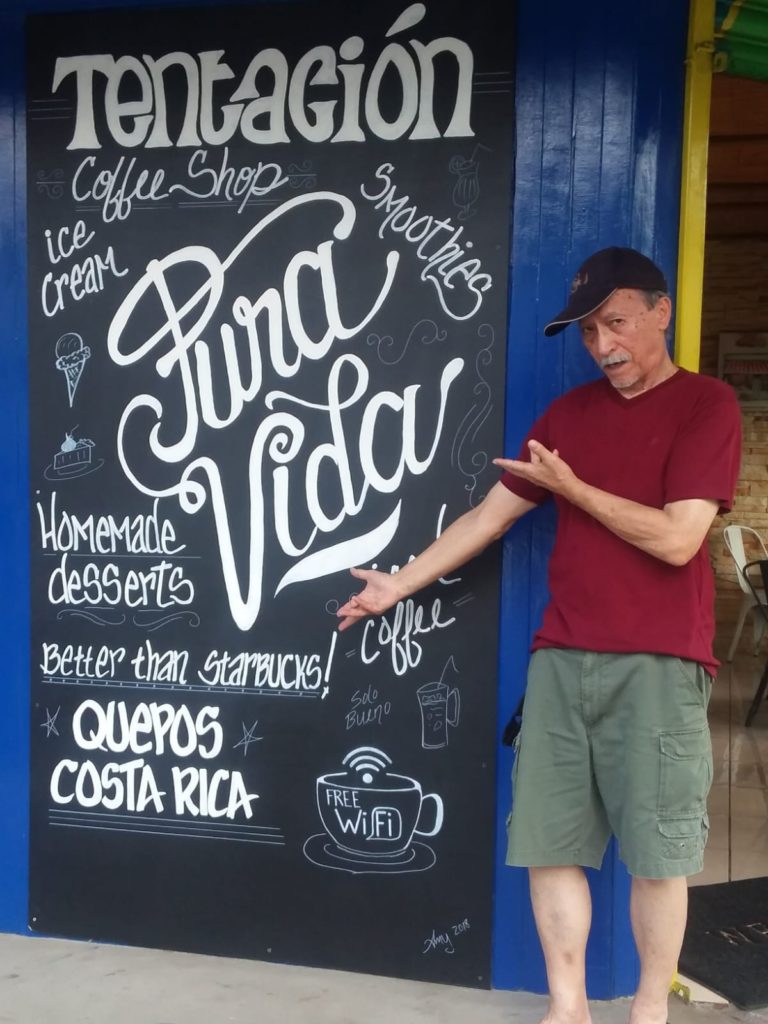 Tentación
Coffee Shop
ice
cream
Smoothies
Pura
Vida
Homemade
desserts
coffee
Better than Starbucks!
Solo
Bueno
Quepos
Costa Rica
FREE
WiFi
Amy 2018